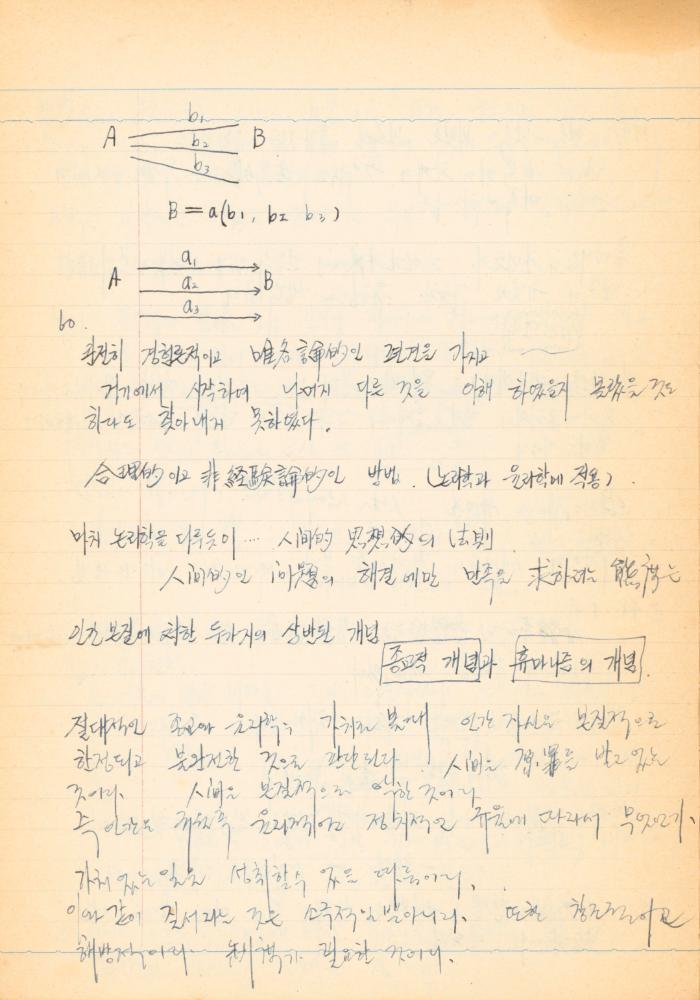 b₁
A b₂ B
b₃
B = a(b₁, b₂ b₃)
a₁
A a₂ B
a₃
60.
완전히 경험론적이고 唯名論的인 편견을 가지고
거기에서 시작하여 나머지 다른 것을 이해 하였을지 몰랐을 것도
하나도 찾아내지 못하였다.
合理的이고 非経験論的인 방법. (논리학과 윤리학에 적용).
마치 논리학을 다루듯이 … 人间的 思想的의 法則
人间的인 问題의 해결에만 만족을 求하려는 態度는
인간본질에 대한 두가지의 상반된 개념
종교적 개념과 휴머니즘의 개념.
절대적인 종교와 윤리학의 가치로 볼때 인간 자신은 본질적으로
한정되고 불완전한 것으로 판단된다. 人间은 罪를 받고 있는
것이다. 人间은 본질적으로 악한 것이다
즉 인간은 윤리적이고 정치적인 규율에 따라서 무엇인가
가치 있는 일을 성취할 수 있을 따름이다.
이와 같이 질서라는 것은 소극적일뿐아니라. 또한 창조적이고
해방적이다. 필요한 것이다.